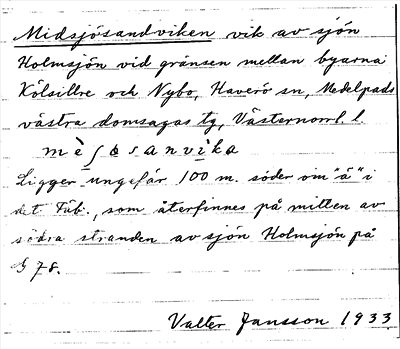 Midsjösandviken vik av sjön
Holmsjön vid gränsen mellan byarna
Kölsillre och Nybo, Haverö sn, Medelpads
västra domsagas tg, Västernorrl. l.
mèʃɵsanvika
Ligger ungefär 100 m. söder om "ä" i
det Tub., som återfinnes på mitten av
södra stranden av sjön Holmsjön på
G 78.
Valter Jansson 1933